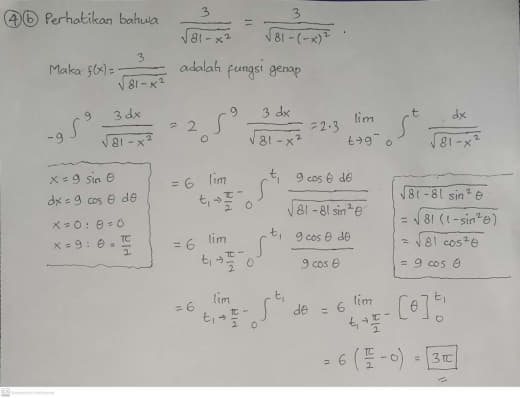 ④ⓑ Perhatikan bahwa 3/√(81-x²) = 3/√(81-(-x)²).
Maka f(x) = 3/√(81-x²) adalah fungsi genap
-9∫⁹ 3 dx/√(81-x²) = 2 0∫⁹ 3 dx/√(81-x²) = 2.3 lim t→9⁻ 0∫ᵗ dx/√(81-x²)
x = 9 sin θ
dx = 9 cos θ dθ
x = 0 : θ = 0
x = 9 : θ = π/2
= 6 lim t₁→π/2⁻ 0∫^t₁ 9 cos θ dθ/√(81-81 sin²θ)
= 6 lim t₁→π/2⁻ 0∫^t₁ 9 cos θ dθ/9 cos θ
√(81-81 sin²θ)
= √(81 (1-sin²θ))
= √(81 cos²θ)
= 9 cos θ
= 6 lim t₁→π/2⁻ 0∫^t₁ dθ = 6 lim t₁→π/2⁻ [θ]₀^t₁
= 6 (π/2 - 0) = 3π